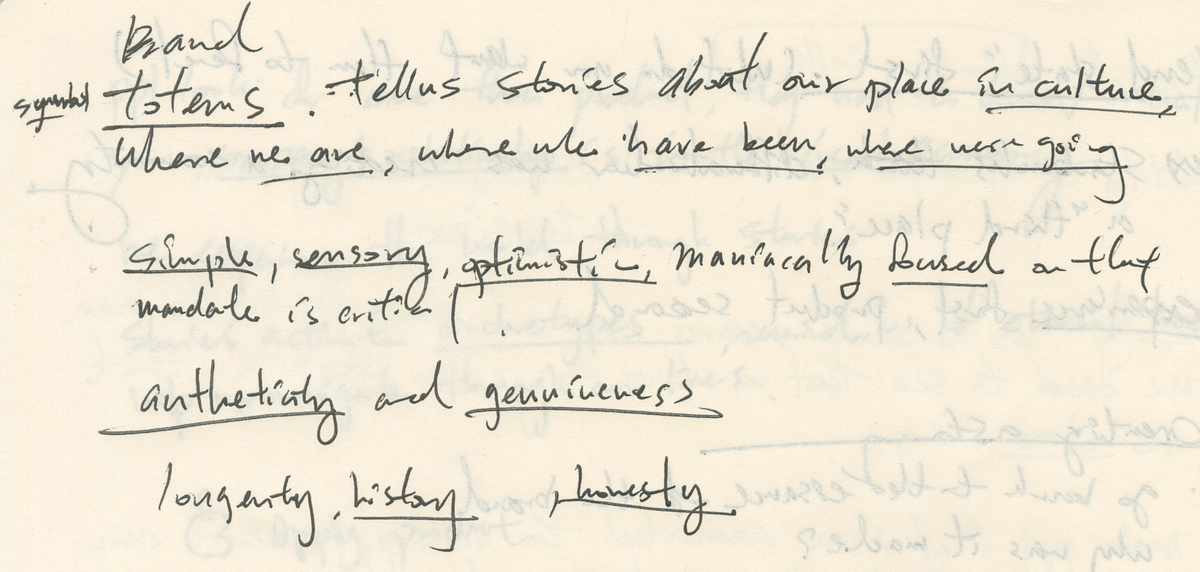 Brand
symbol totems. tell us stories about our place in culture,
where we are, where we have been, where we're going
simple, sensory, optimistic, maniacally focused on that
mandate is critical.
autheticity and genuineness
longevity, history, honesty